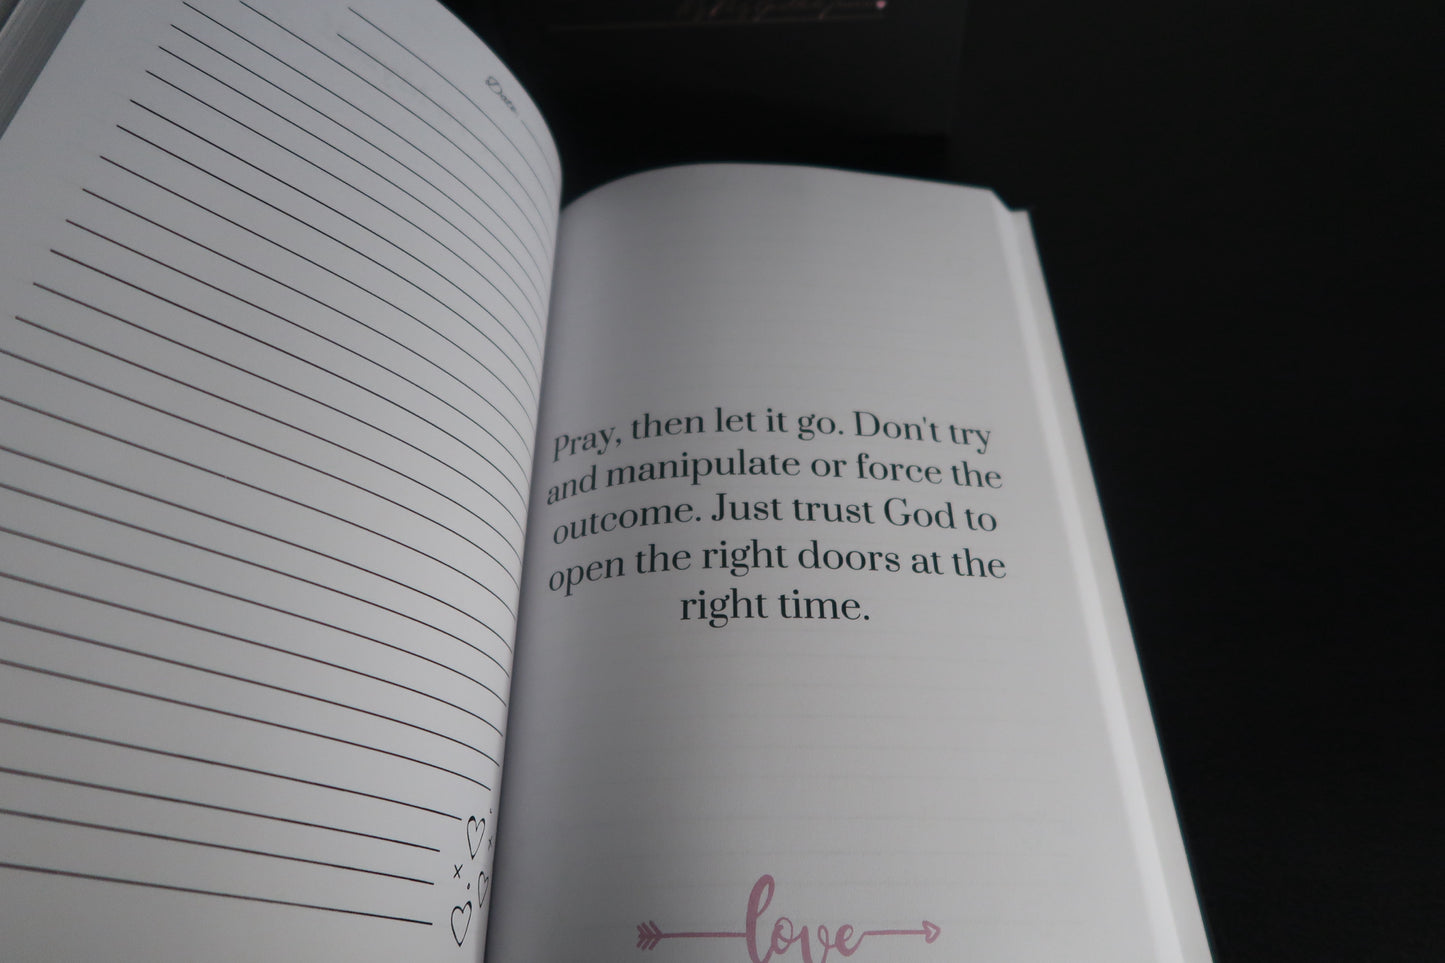 Date
Pray, then let it go. Don't try
and manipulate or force the
outcome. Just trust God to
open the right doors at the
right time.
love